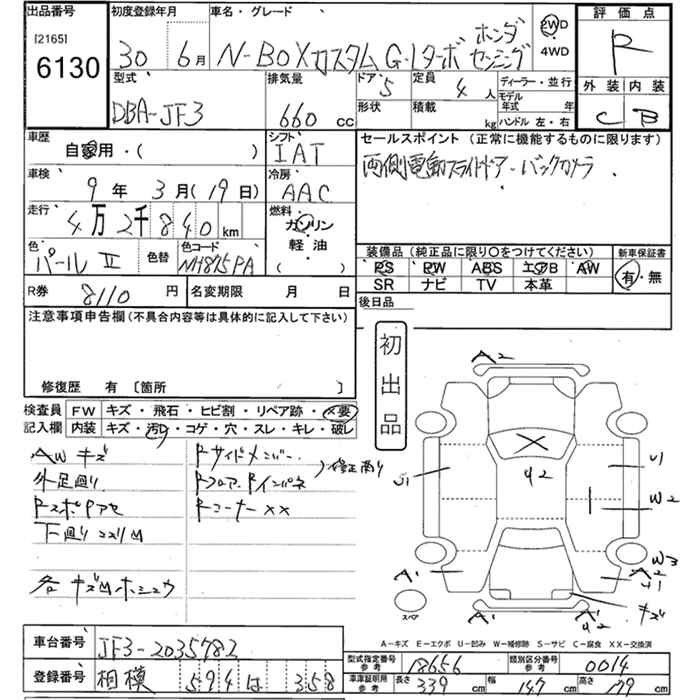 出品番号 初度登録年月 車名・グレード 評価点
[2165]
6130
30 6月 N-BOXカスタム G・Lターボ ホンダセンシング 2WD R
4WD
型式 排気量 ドア 定員 ディーラー・並行 外装 内装
DBA-JF3 660 cc 5 4人 モデル年式 年
形状 積載 kg ハンドル 左・右 C B
車歴 シフト セールスポイント (正常に機能するものに限ります)
自家用・( ) IAT 両側電動スライドドア・バックカメラ
車検 冷房
9年 3月(19日) AAC
走行 燃料
4万2千840km ガソリン
軽油
( )
色 色替 色コード 装備品(純正品に限り○をつけてください) 新車保証書
パールⅡ NH875PA PS PW ABS エアB AW 有・無
SR ナビ TV 本革
R券 8110円 名変期限 月 日 後日品
注意事項申告欄(不具合内容等は具体的に記入して下さい)
初出品
修復歴 有〔箇所 〕
A2
検査員 FW キズ・飛石・ヒビ割・リペア跡・×要
記入欄 内装 キズ・汚レ・コゲ・穴・スレ・キレ・破レ
AWキズ Rサイドメンバー
外足廻り Rフロア Rインパネ 修正有り
Rコーナー ××
下廻り
各キズ
U1 42 U1
W2
A1 W3
A2
キズ
スペア A1 A2
A-キズ E-エクボ U-凹み W-補修跡 S-サビ C-腐食 XX-交換済
車台番号 JF3-2035782
型式指定番号 参考 18656 類別区分番号 参考 0014
登録番号 相模 594 は 358
車庫証明用 参考 長さ 339cm 幅 147cm 高さ 179cm